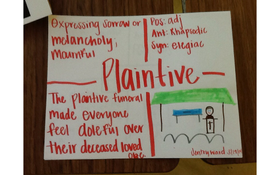 Expressing sorrow or
melancholy,
Mournful
Pos: adj
Ant: Rhapsodic
Syn: elegiac
Plaintive
The plaintive funeral
made everyone
feel doleful over
their deceased loved
one.